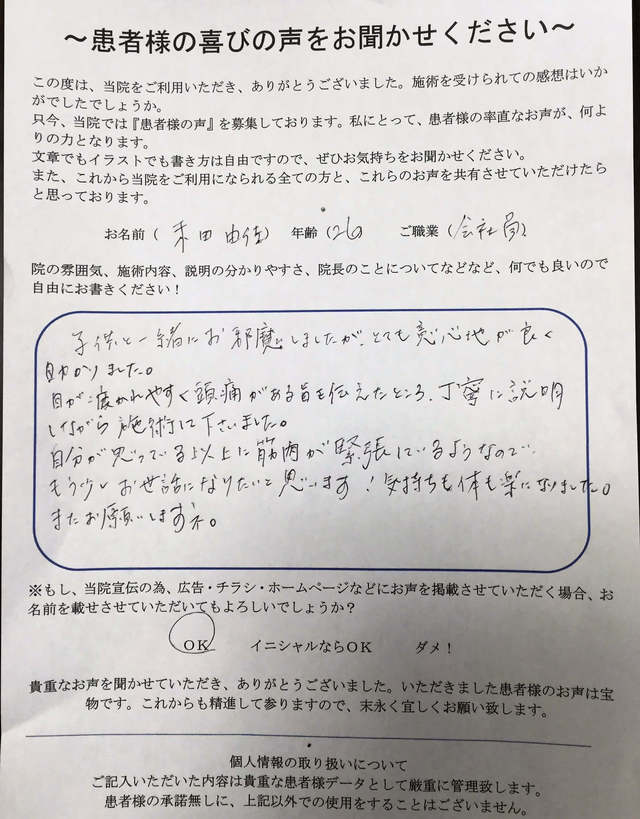 ～患者様の喜びの声をお聞かせください～
この度は、当院をご利用いただき、ありがとうございました。施術を受けられての感想はいか
がでしたでしょうか。
只今、当院では『患者様の声』を募集しております。私にとって、患者様の率直なお声が、何よ
りの力となります。
文章でもイラストでも書き方は自由ですので、ぜひお気持ちをお聞かせください。
また、これから当院をご利用になられる全ての方と、これらのお声を共有させていただけたら
と思っております。
お名前（ 末田 由佳 ） 年齢（26） ご職業（会社員）
院の雰囲気、施術内容、説明の分かりやすさ、院長のことについてなどなど、何でも良いので
自由にお書きください！
子供と一緒にお邪魔しましたが、とても居心地が良く
助かりました。
目が疲かれやすく頭痛がある旨を伝えたところ、丁寧に説明
しながら施術して下さいました。
自分が思っている以上に筋肉が緊張しているようなので、
もう少しお世話になりたいと思います！気持ちも体も楽になりました。
またお願いしますネ。
※もし、当院宣伝の為、広告・チラシ・ホームページなどにお声を掲載させていただく場合、お
名前を載せさせていただいてもよろしいでしょうか？
ＯＫ イニシャルならＯＫ ダメ！
貴重なお声を聞かせていただき、ありがとうございました。いただきました患者様のお声は宝
物です。これからも精進して参りますので、末永く宜しくお願い致します。
個人情報の取り扱いについて
ご記入いただいた内容は貴重な患者様データとして厳重に管理致します。
患者様の承諾無しに、上記以外での使用をすることはございません。